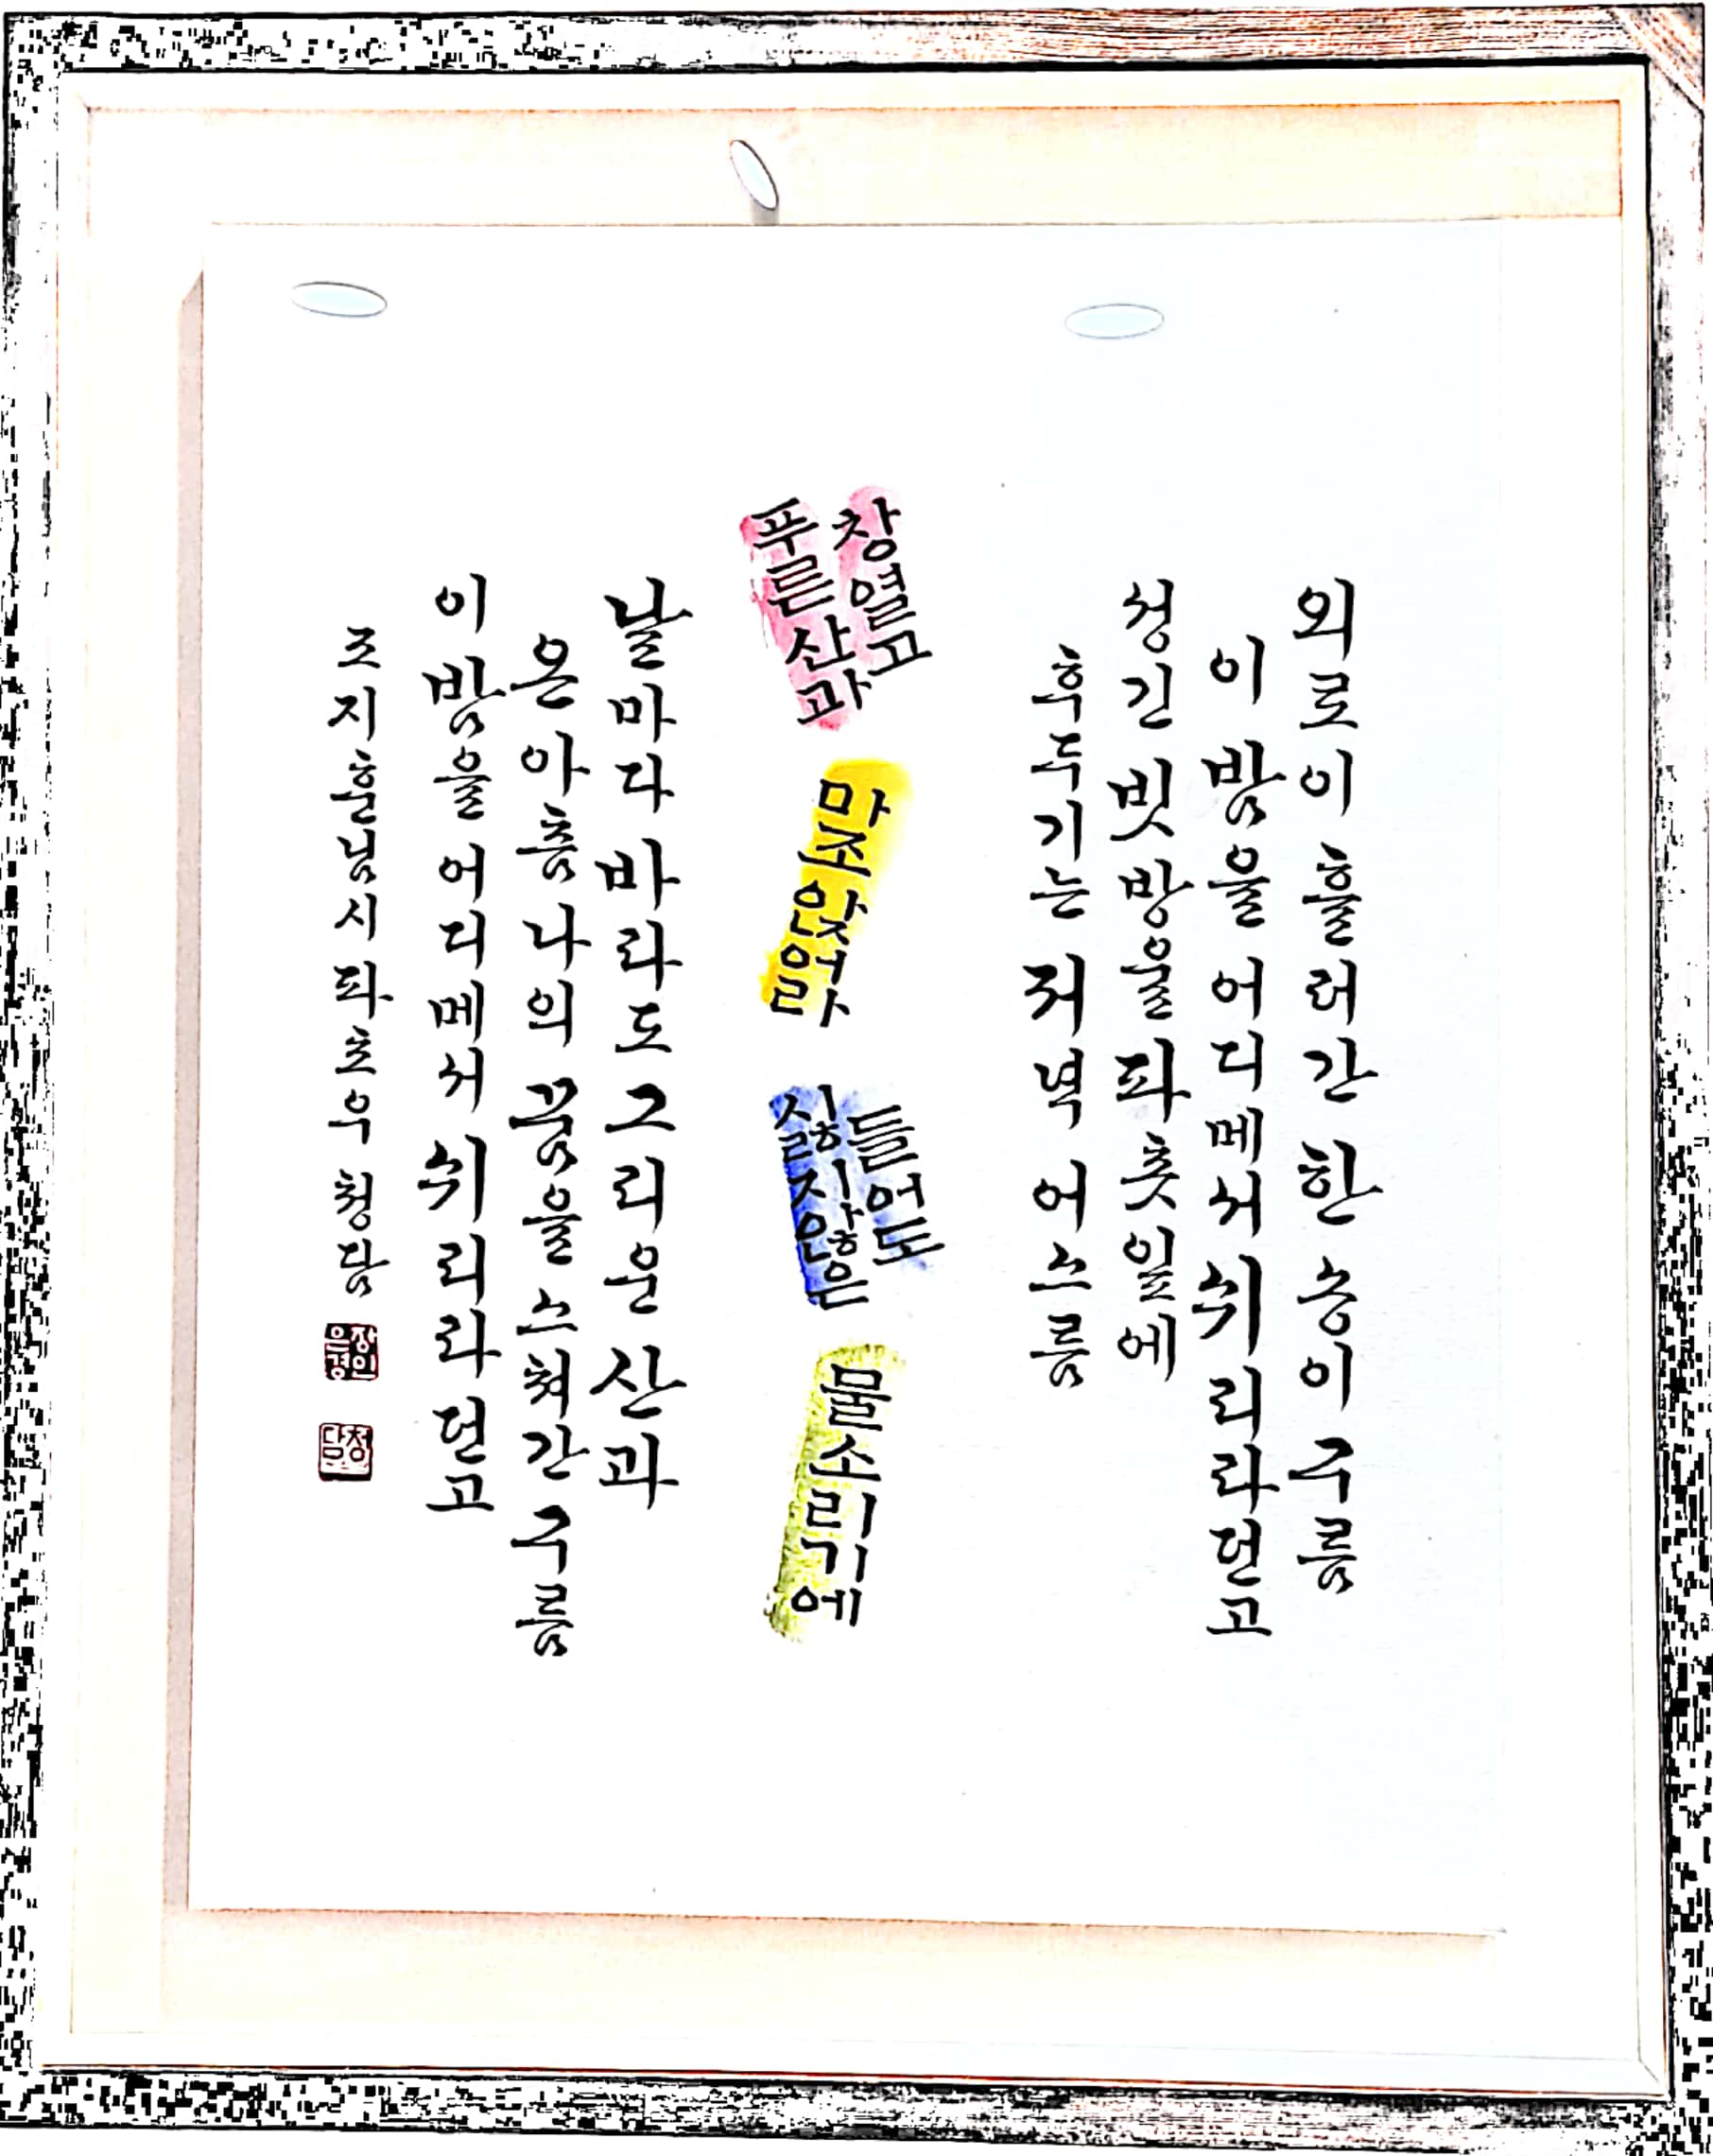 외로이 흘러간 한 송이 구름
이 밤을 어디메서 쉬리라던고
성긴 빗방울 파촛잎에
후두기는 저녁 어스름
창열고
푸른 산과
마조 앉어라
들어도
싫지않은
물소리기에
날마다 바라도 그리운 산과
온 아츰 나의 꿈을 스쳐간 구름
이 밤을 어디메서 쉬리라던고
조지훈님 시 파초우 청담
장인
은경
청담